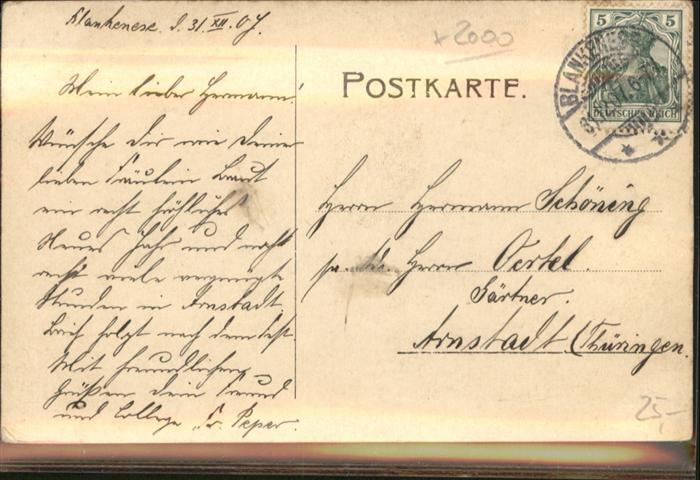 Blankenese d. 31. XII. 07.
Mein lieber Hermann!
Wünsche Dir wie Deiner
lieben Fräulein Braut
ein recht fröhliches
Neues Jahr und noch
recht viele vergnügte
Stunden in Arnstadt.
Brief folgt nach dem Fest.
Mit freundlichen
Grüßen Dein Freund
und College Fr. Peper.
+ 2000
POSTKARTE.
5 5
DEUTSCHES REICH
BLANKENESE
Herrn Hermann Schöning
Herrn Oertel.
Gärtner.
Arnstadt (Thüringen.
25,-